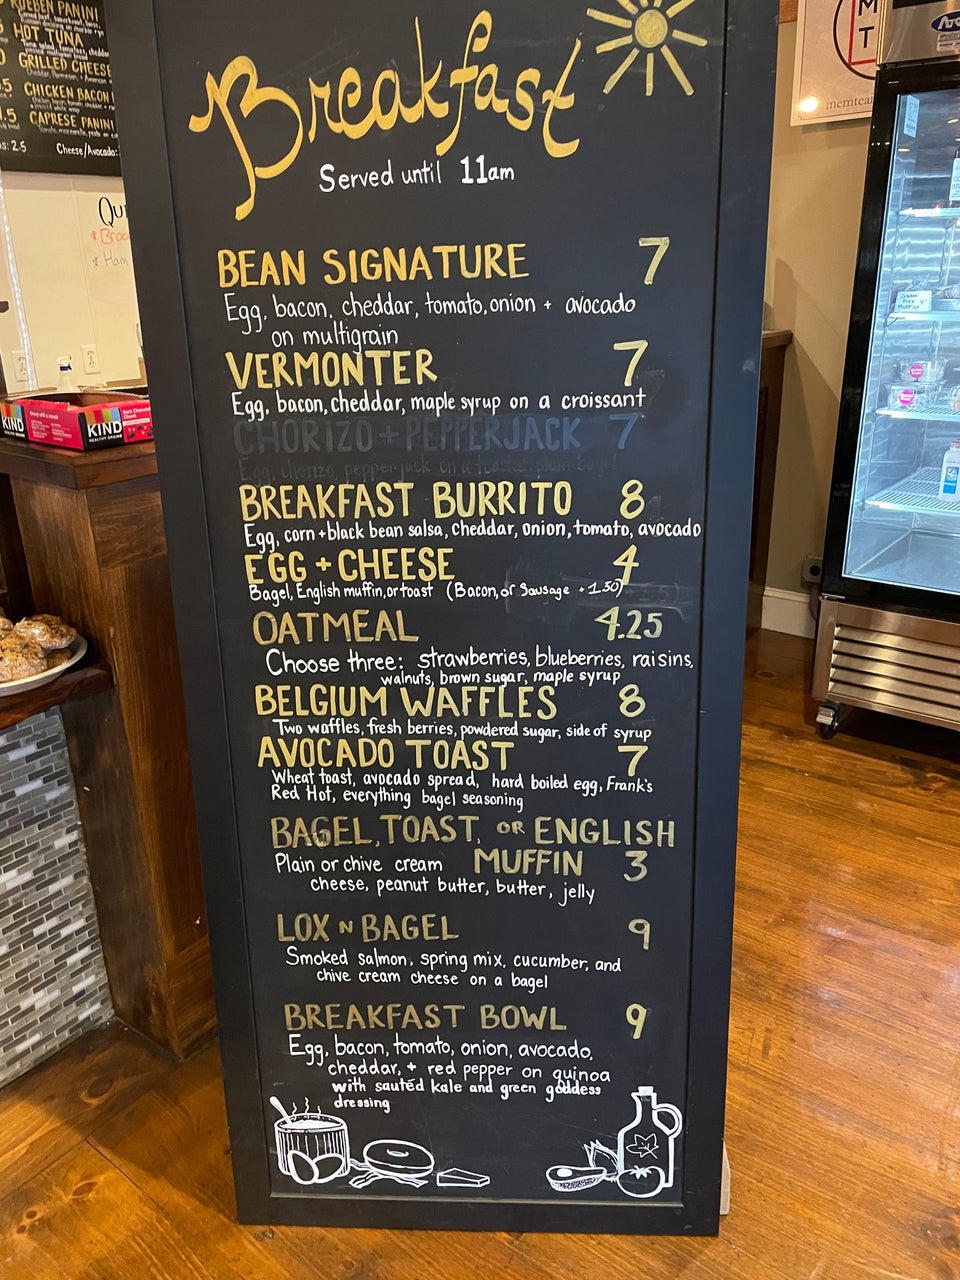 RUEBEN PANINI
HOT TUNA
GRILLED CHEESE
CHICKEN BACON
CAPRESE PANINI
Cheese/Avocado:
Breakfast
Served until 11am
BEAN SIGNATURE 7
Egg, bacon, cheddar, tomato, onion + avocado
on multigrain
VERMONTER 7
Egg, bacon, cheddar, maple syrup on a croissant
CHORIZO + PEPPERJACK 7
Egg, chorizo, pepper-jack on a toasted plain bagel
BREAKFAST BURRITO 8
Egg, corn + black bean salsa, cheddar, onion, tomato, avocado
EGG + CHEESE 4
Bagel, English muffin, or toast (Bacon, or Sausage + 1.50)
OATMEAL 4.25
Choose three: strawberries, blueberries, raisins,
walnuts, brown sugar, maple syrup
BELGIUM WAFFLES 8
Two waffles, fresh berries, powdered sugar, side of syrup
AVOCADO TOAST 7
Wheat toast, avocado spread, hard boiled egg, Frank's
Red Hot, everything bagel seasoning
BAGEL, TOAST, OR ENGLISH
MUFFIN 3
Plain or chive cream
cheese, peanut butter, butter, jelly
LOX N BAGEL 9
Smoked salmon, spring mix, cucumber, and
chive cream cheese on a bagel
BREAKFAST BOWL 9
Egg, bacon, tomato, onion, avocado,
cheddar, + red pepper on quinoa
with sautéd kale and green goddess
dressing
KIND
KIND
HEALTHY GRAINS
Ham
M
T
memtea
Gluten
Free
Muffins